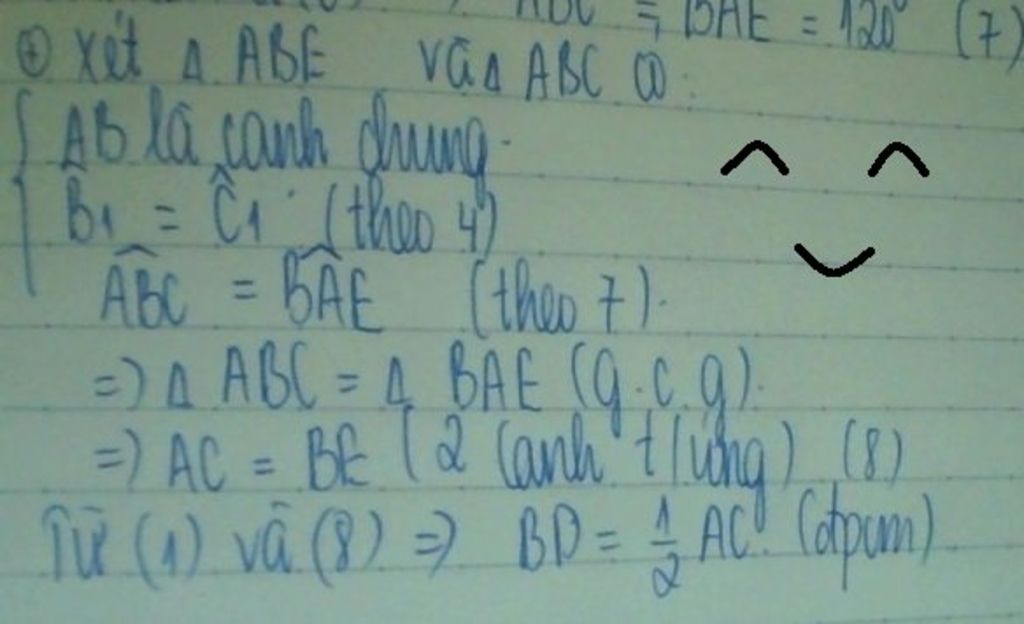 ABC = BAE = 120° (7)
⊕ Xét Δ ABE và Δ ABC có:
AB là cạnh chung.
B̂1 = Ĉ1 (theo 4)
ABC = BAE (theo 7).
=> Δ ABC = Δ BAE (g.c.g).
=> AC = BE (2 cạnh t/ứng) (8)
Từ (1) và (8) => BD = 1/2 AC. (đpcm)